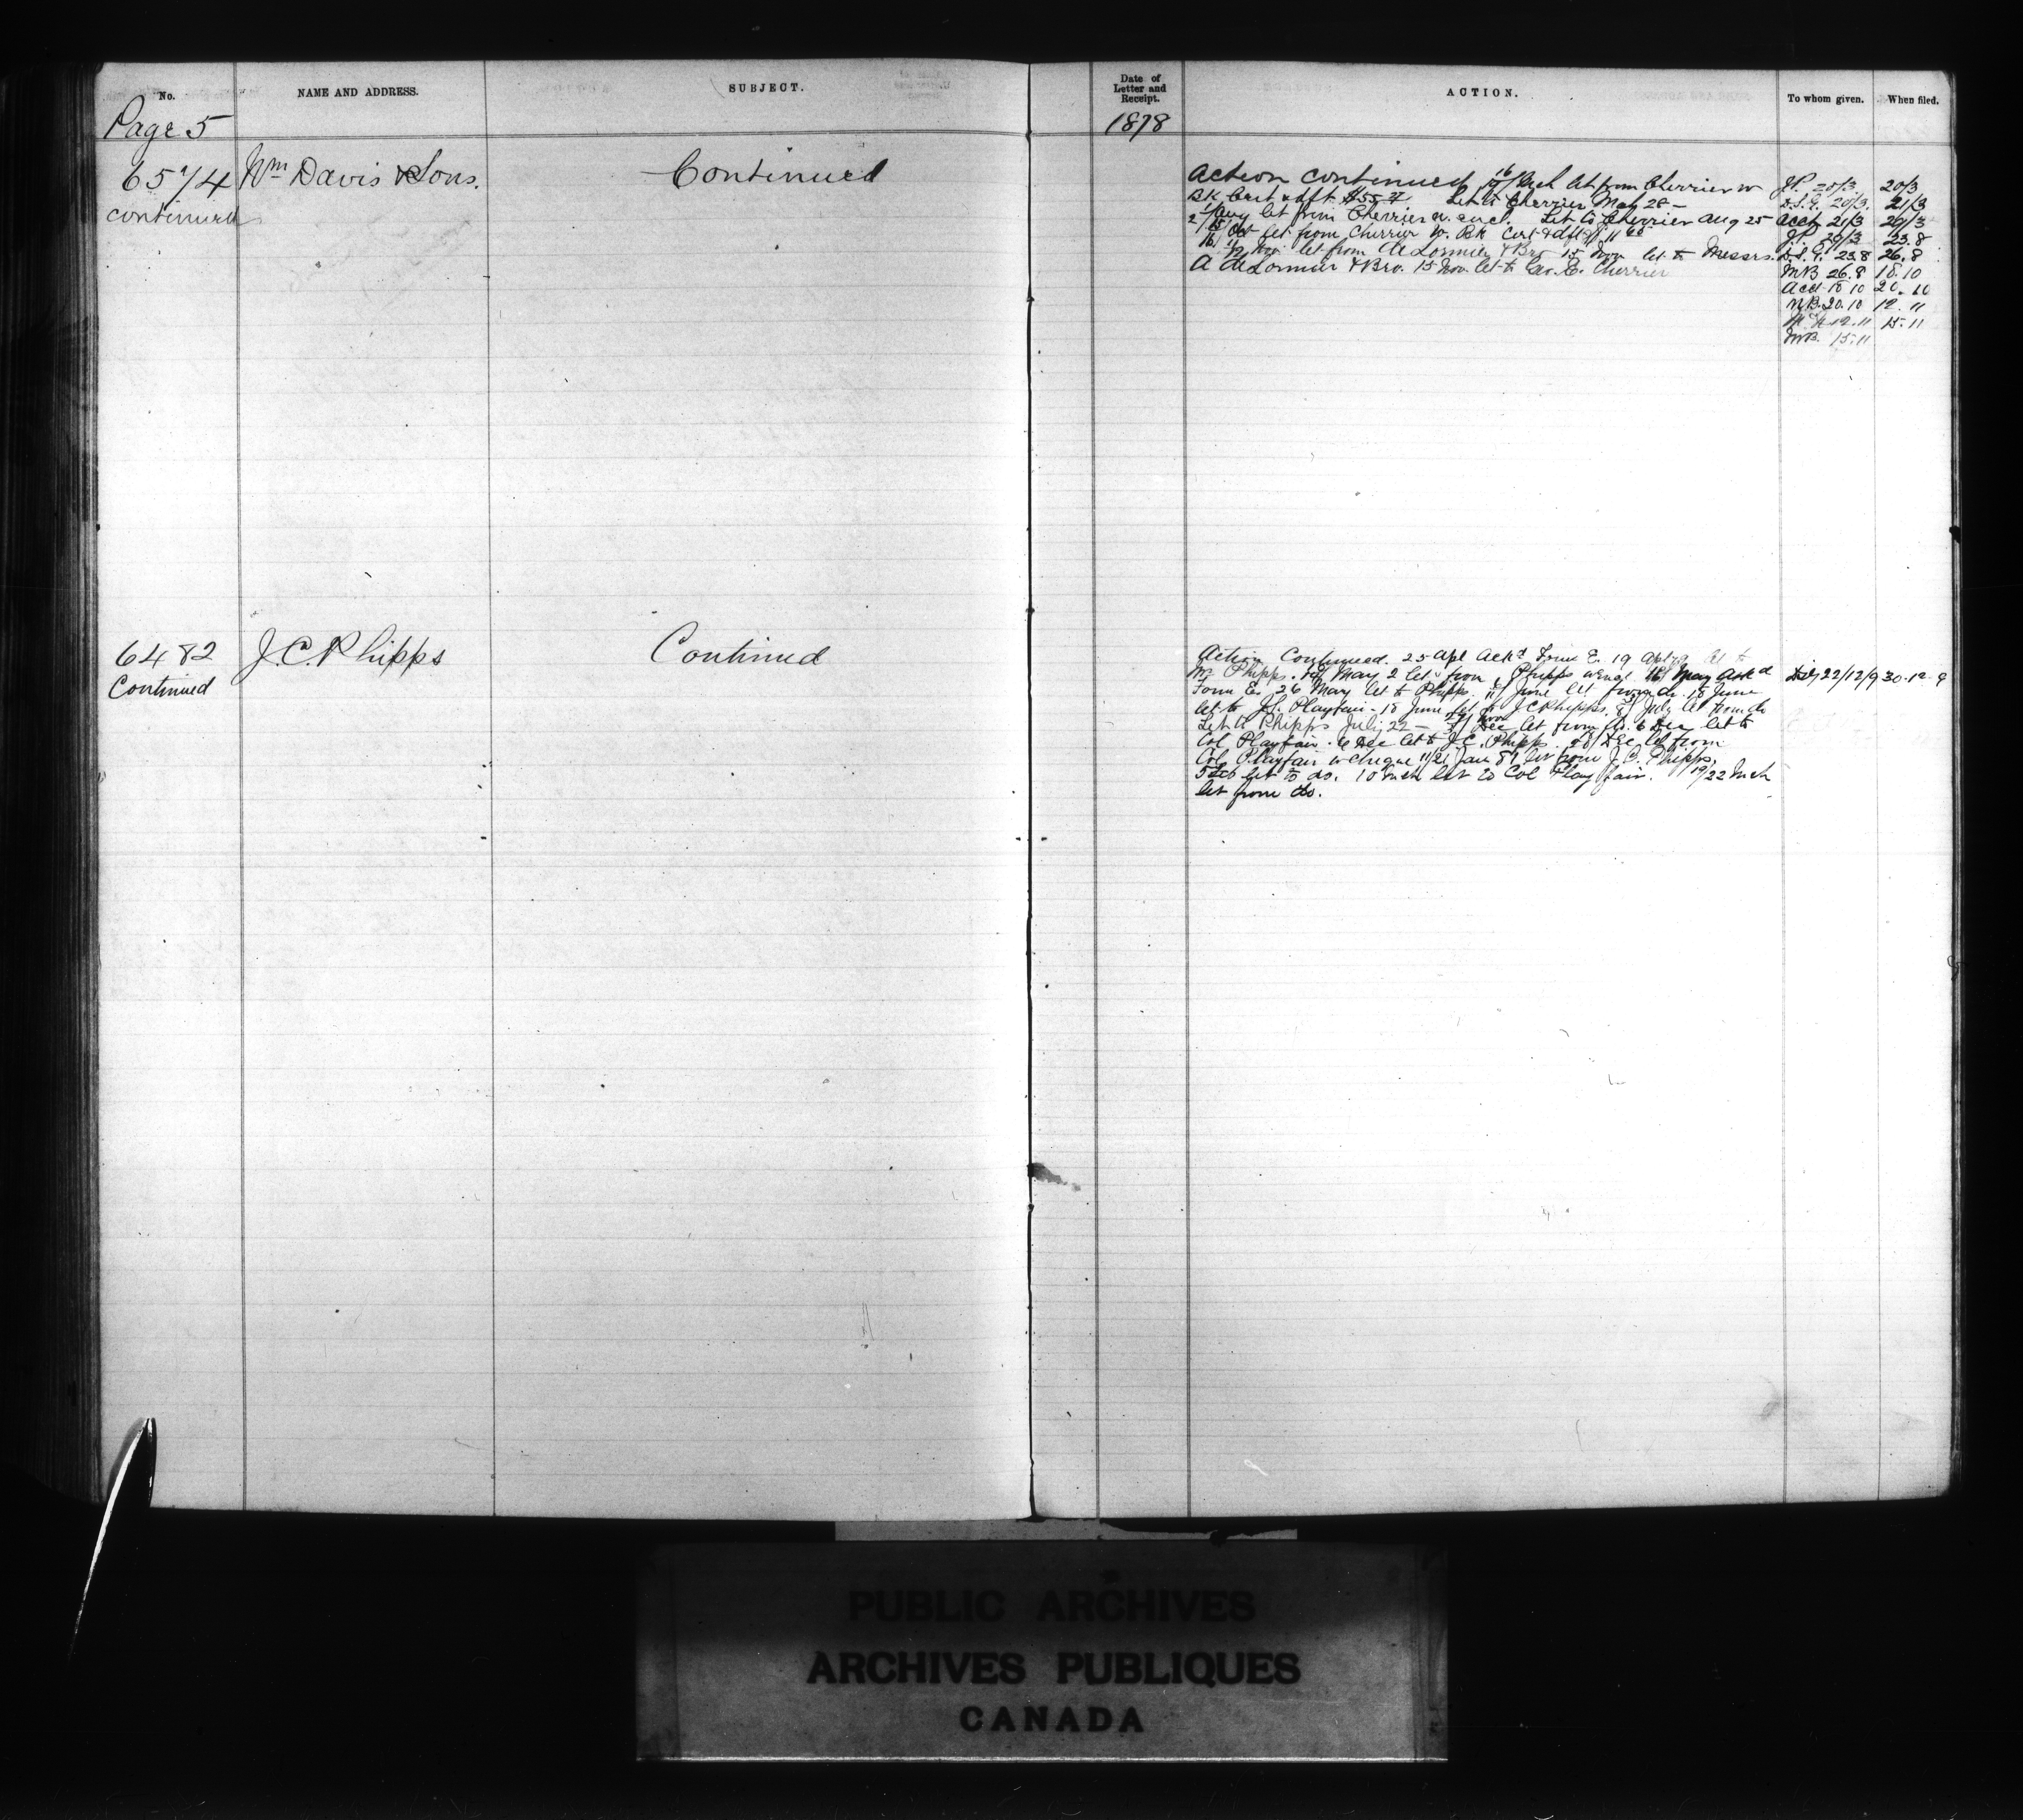 No. NAME AND ADDRESS. SUBJECT. Date of Letter and Receipt. ACTION. To whom given. When filed.
Page 5
1878
6574 Wm Davis & Sons. Continued
continued
Action continued 16/19 Mch let from Cherrier w
Bk Cert & dft $55 Let to Cherrier May 28 -
Aug let from Cherrier w. encl. Let to Cherrier Aug 25
Oct let from Cherrier w. Bk Cert & dft $11
Nov let from A DeLorimier & Bro 15 Nov let to Messrs.
A DeLorimier & Bro. 15 Nov. let to Geo. E. Cherrier
J.P. 20/3 20/3
D.S.G. 20/3. 21/3
Acct 21/3 29/3
J.P. 29/3 23.8
D.S.G. 23.8 26.8
MB 26.8 18.10
Acct 18 10 20.10
MB. 20.10 12.11
12.11 15.11
MB. 15.11
6482 J.C. Phipps Continued
Continued
Action Continued. 25 Apl Ackd Form E. 19 Apl 79 let to
Mr Phipps. May 2 let from Phipps w encl 16/ May Ackd
Form E. 26 May let to Phipps. 11/ June let from do. 18 June
let to J.L. Playfair - 18 June let to J C Phipps. 8/ July let from do
Let to Phipps July 22 - let from do. 6 Dec let to
Col Playfair. 6 Dec let to J.C. Phipps. 20/ Dec let from
Col Playfair w cheque 11/21 Jan 81 let from J.C. Phipps,
5 Feb let to do. 10 Mch let to Col Playfair. 19/22 Mch
let from do.
22/12/9 30.12.9
PUBLIC ARCHIVES
ARCHIVES PUBLIQUES
CANADA